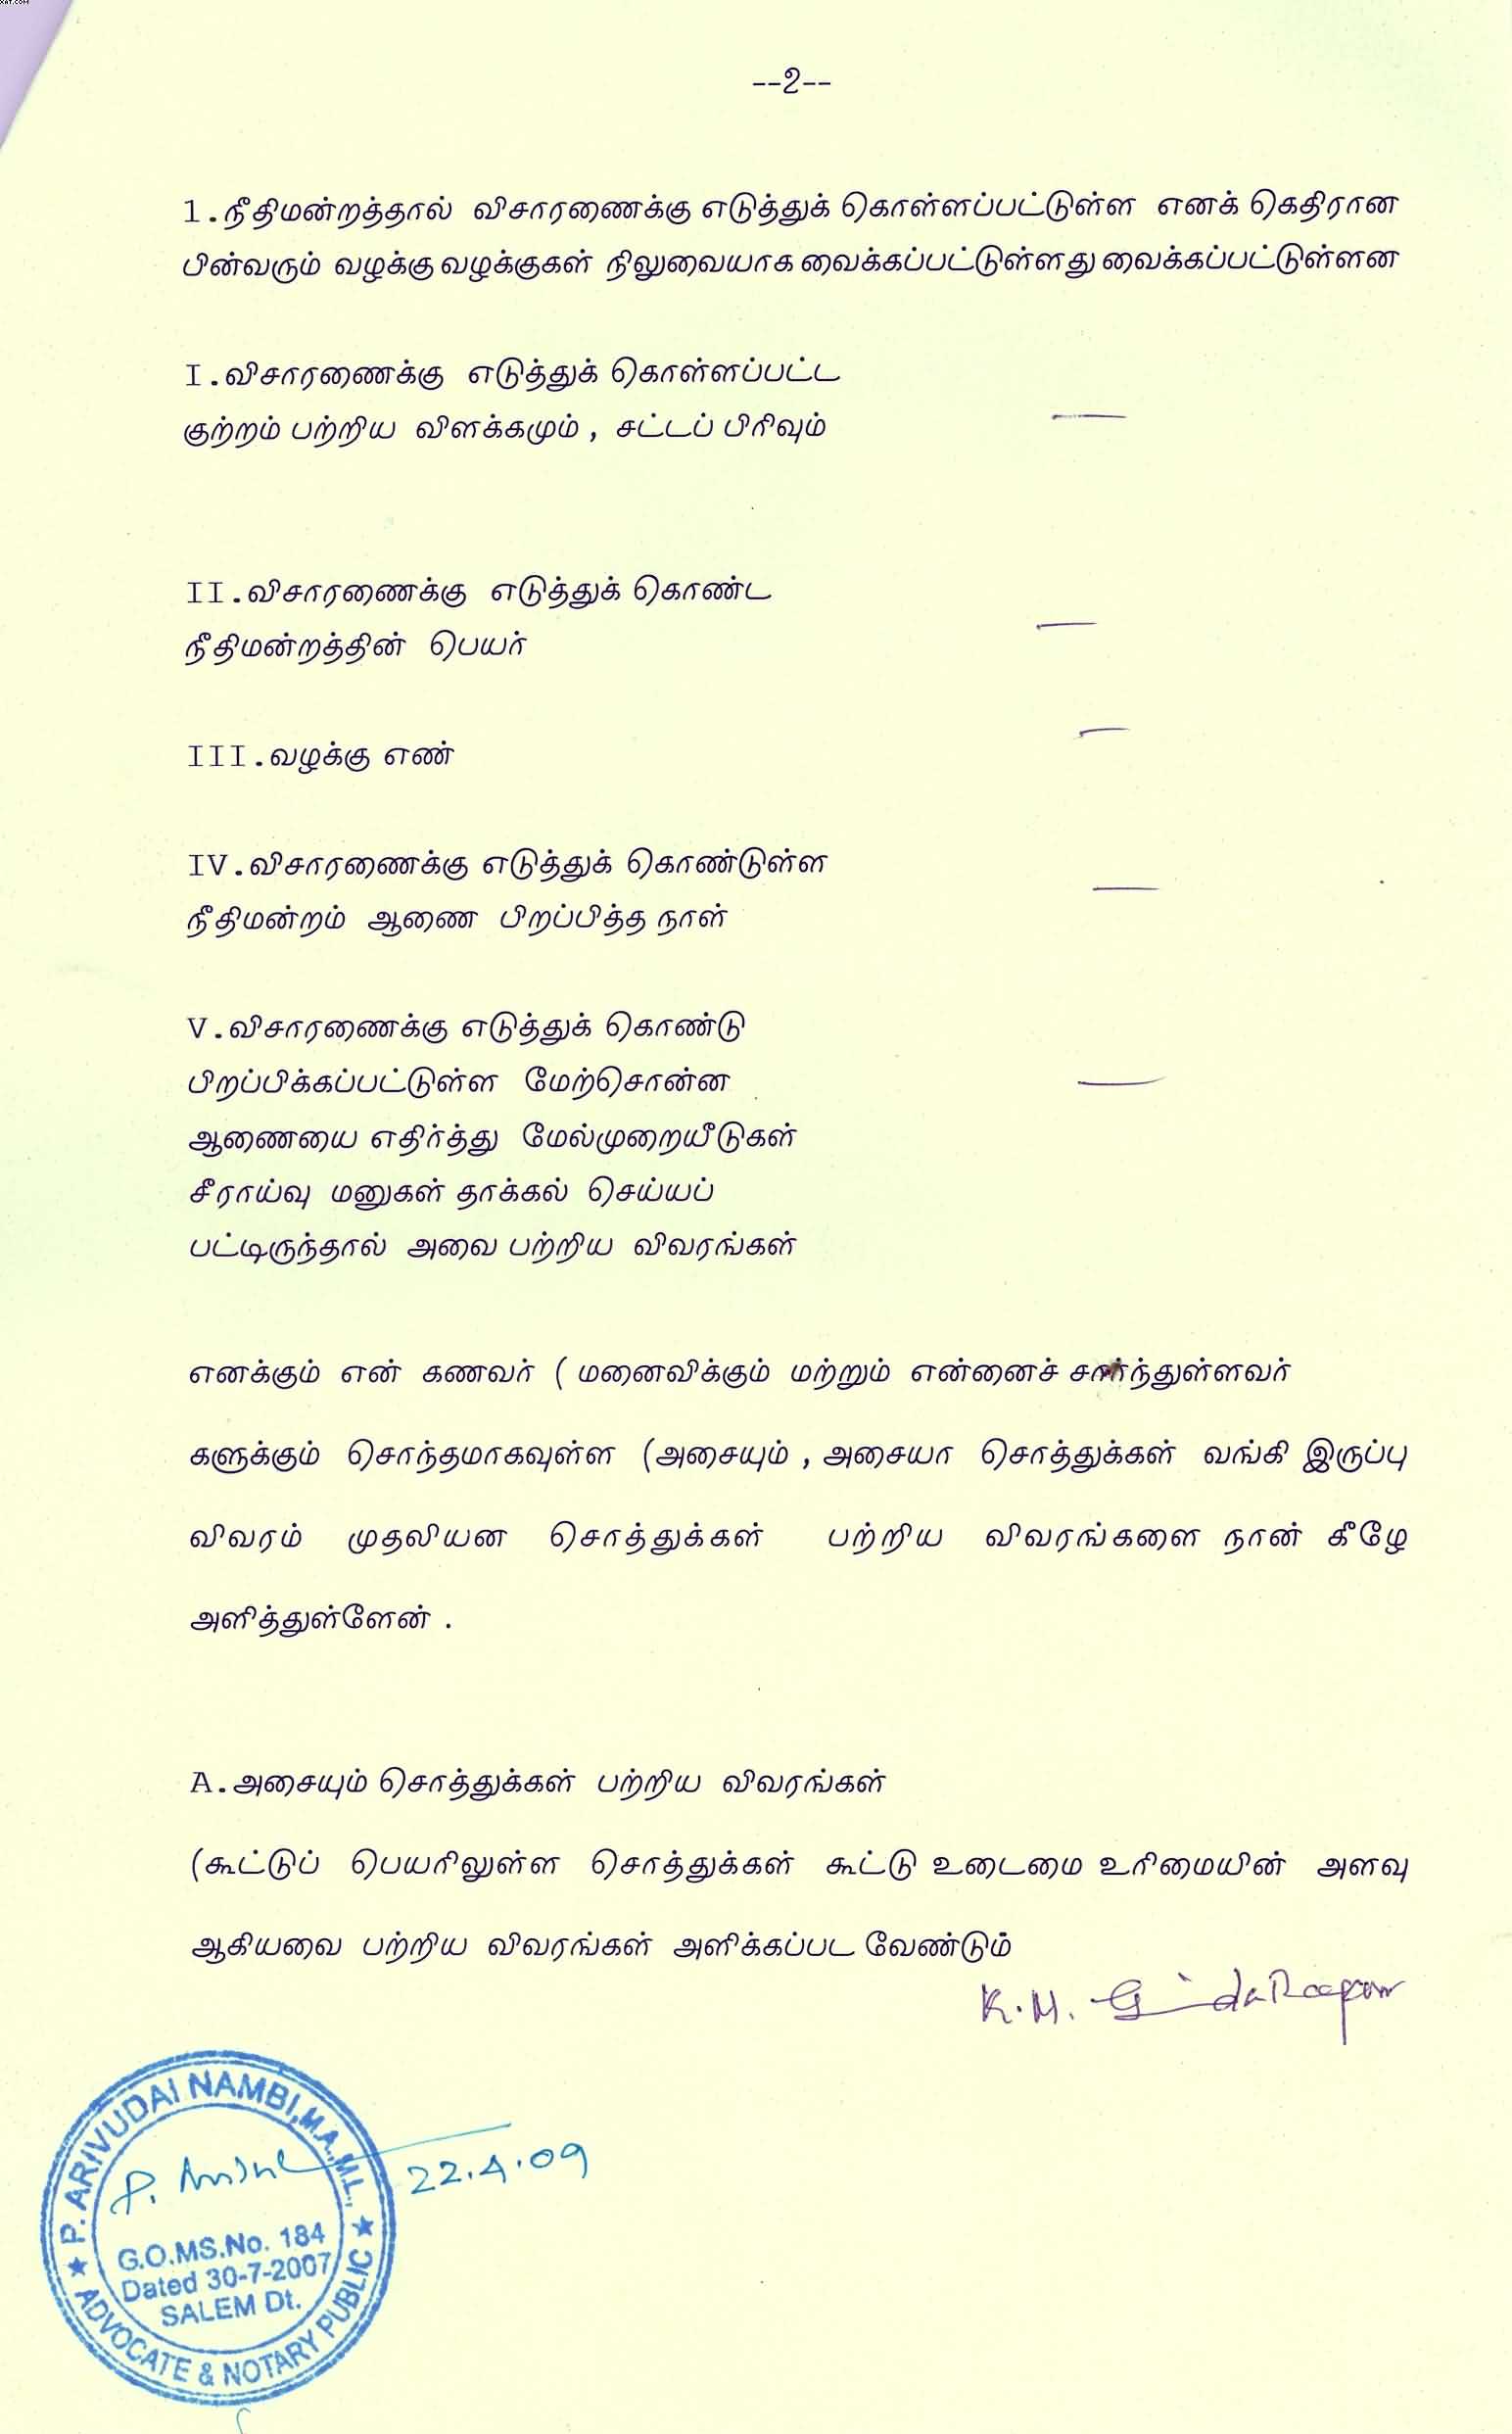 --2--
1.நீதிமன்றத்தால் விசாரணைக்கு எடுத்துக் கொள்ளப்பட்டுள்ள எனக் கெதிரான
பின்வரும் வழக்கு வழக்குகள் நிலுவையாக வைக்கப்பட்டுள்ளது வைக்கப்பட்டுள்ளன
I.விசாரணைக்கு எடுத்துக் கொள்ளப்பட்ட
குற்றம் பற்றிய விளக்கமும், சட்டப் பிரிவும்
II.விசாரணைக்கு எடுத்துக் கொண்ட
நீதிமன்றத்தின் பெயர்
III.வழக்கு எண்
IV.விசாரணைக்கு எடுத்துக் கொண்டுள்ள
நீதிமன்றம் ஆணை பிறப்பித்த நாள்
V.விசாரணைக்கு எடுத்துக் கொண்டு
பிறப்பிக்கப்பட்டுள்ள மேற்சொன்ன
ஆணையை எதிர்த்து மேல்முறையீடுகள்
சீராய்வு மனுகள் தாக்கல் செய்யப்
பட்டிருந்தால் அவை பற்றிய விவரங்கள்
எனக்கும் என் கணவர் ( மனைவிக்கும் மற்றும் என்னைச் சார்ந்துள்ளவர்
களுக்கும் சொந்தமாகவுள்ள (அசையும் , அசையா சொத்துக்கள் வங்கி இருப்பு
விவரம் முதலியன சொத்துக்கள் பற்றிய விவரங்களை நான் கீழே
அளித்துள்ளேன் .
A.அசையும் சொத்துக்கள் பற்றிய விவரங்கள்
(கூட்டுப் பெயரிலுள்ள சொத்துக்கள் கூட்டு உடைமை உரிமையின் அளவு
ஆகியவை பற்றிய விவரங்கள் அளிக்கப்பட வேண்டும்
K.M.
P. ARIVUDAI NAMBI,M.A.,M.L.,
P.
22.4.09
G.O.MS.No. 184
Dated 30-7-2007
SALEM Dt.
ADVOCATE & NOTARY PUBLIC